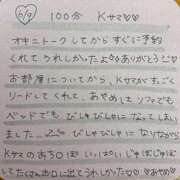 6/9 100分 Kサマ♡♡
オキニトークしてからすぐに予約
くれてうれしかったよ♡♡ありがとう♡
お部屋についてから、Kサマがすごく
リードしてくれて、あやめは ソファでも
ベッドでも びしゃびしゃになってしまい
ました…♡♡ びしゃびしゃになりながら
Kサマのおち〇ぽ いっぱいじゅぽじゅぽ
してたくさんお口に出てうれしかった♡
あやめ♡